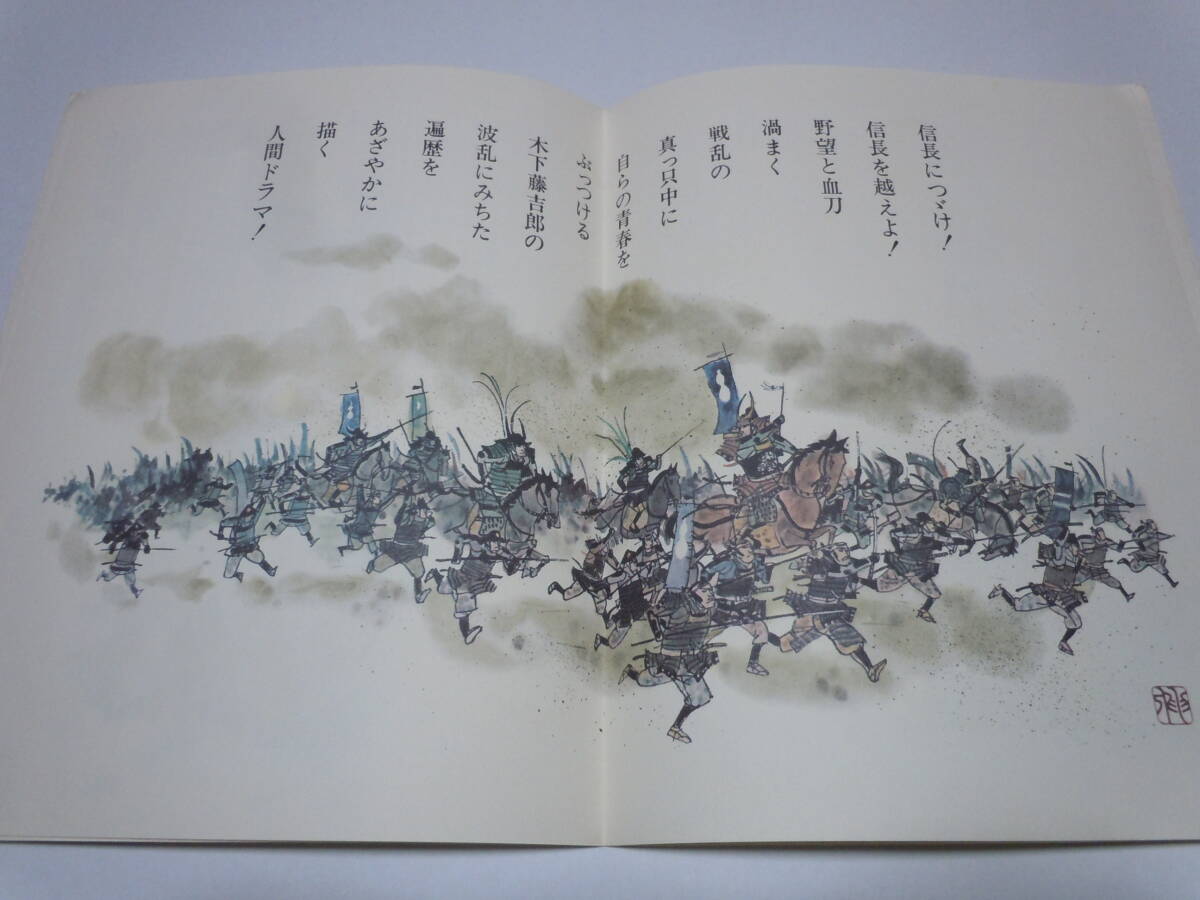 信長につゞけ！
信長を越えよ！
野望と血刀
渦まく
戦乱の
真っ只中に
自らの青春を
ぶっつける
木下藤吉郎の
波乱にみちた
遍歴を
あざやかに
描く
人間ドラマ！